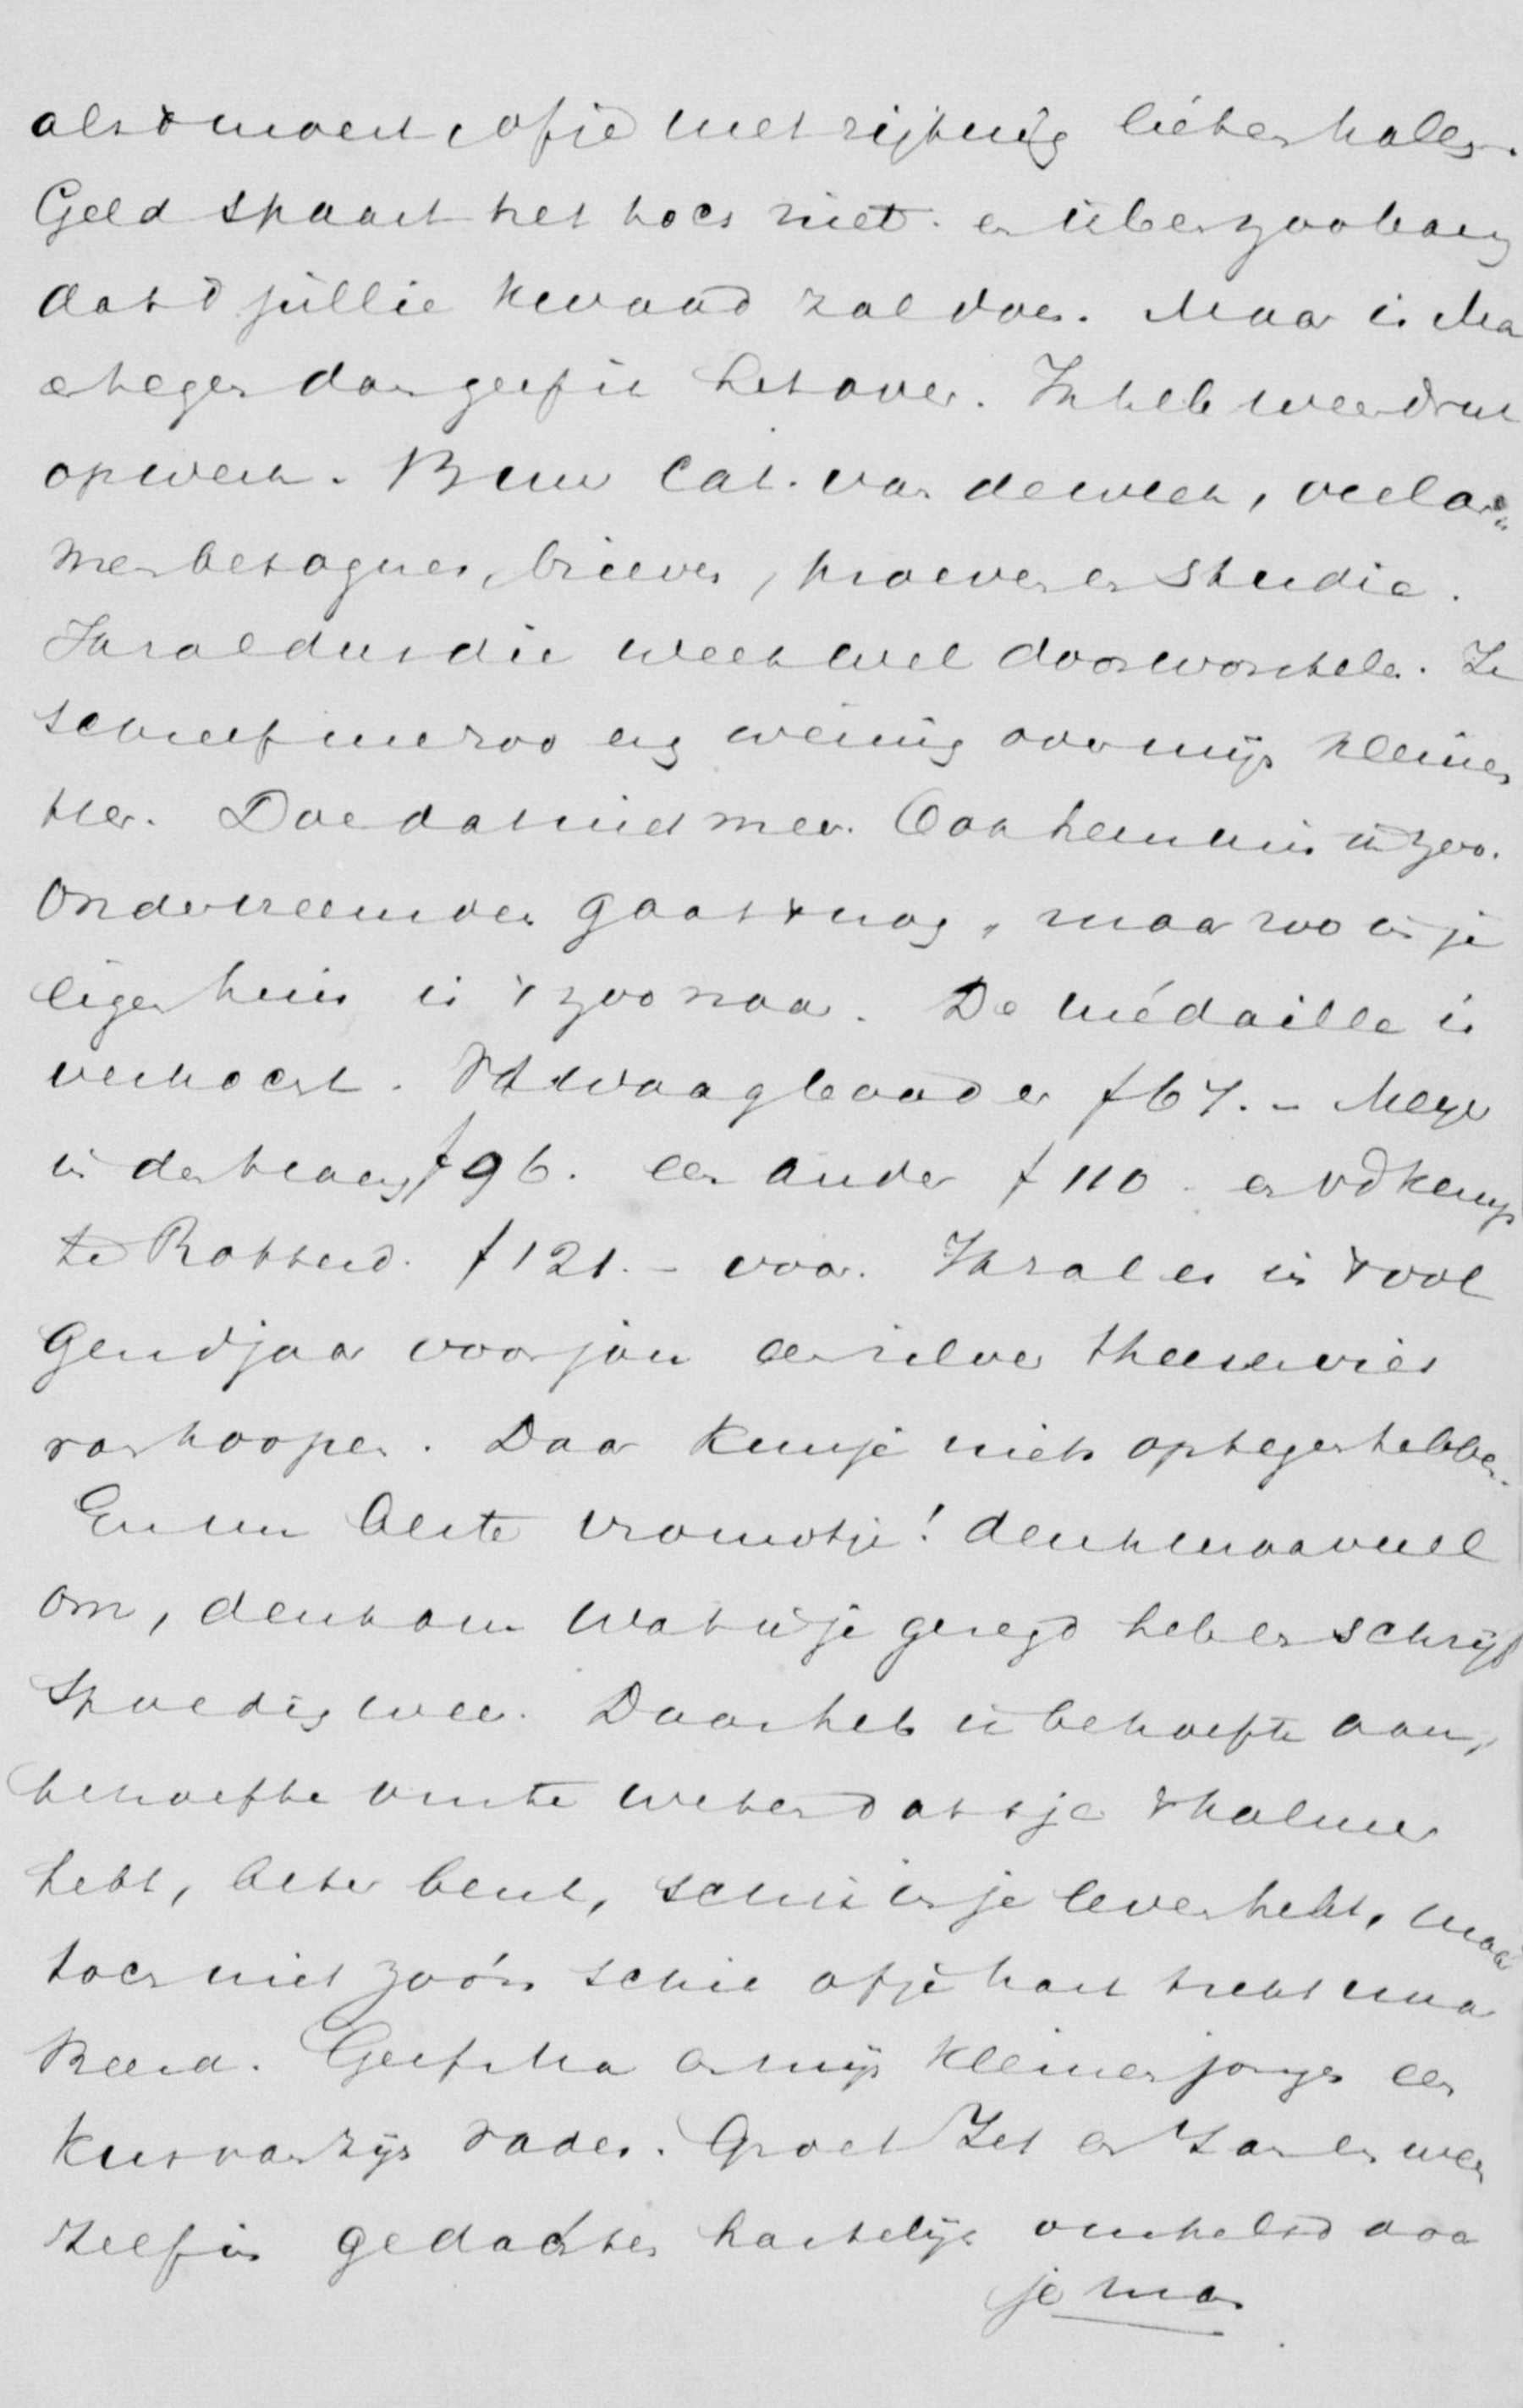 als 't moest of je met rijtuig liet terhalen.
Geld spaart het toch niet. en ik ben zoo bang
dat 't jullie kwaad zal doen. Maar is Ma
er tegen dan geef ik het over. Ik heb weer druk
op werk. B en W Cat. van de week, veel
besognes, brieven, proeven en studie.
Ik zal dus die week wel doorworstelen. Je
schreef me zoo erg weinig over mijn kleinen
Doe dat niet meer. Ook hem mis ik zoo.
Onder vreemden gaat 't nog, maar zoo in je
eigen huis is 't zoo naar. De médaille is
verkocht. Sd Waag bood er f 67.- Meyer
in den Haag f 96. een ander f 110. en vd Kemp
te Rotterd. f 121.- voor. Ik zal er in 't vol
gend jaar voor jou een zilver theeservies
van koopen. Daar kun je niets op tegen hebben.
En nu beste vrouwtje! denk maar veel
om, denk om wat ik je gezegd heb en schrijf
spoedig weer. Daar heb ik behoefte aan,
behoefte om te weten dat je 't kalmer
hebt, beter bent, schik in je leven hebt, maar
toch niet zóó'n schik of je kan best naar
Geef Ma en mijn kleinen jongen een
kus van zijn vader. Groet Jet en Jan en wees
zelf in gedachten hartelijk omhelsd door
je man